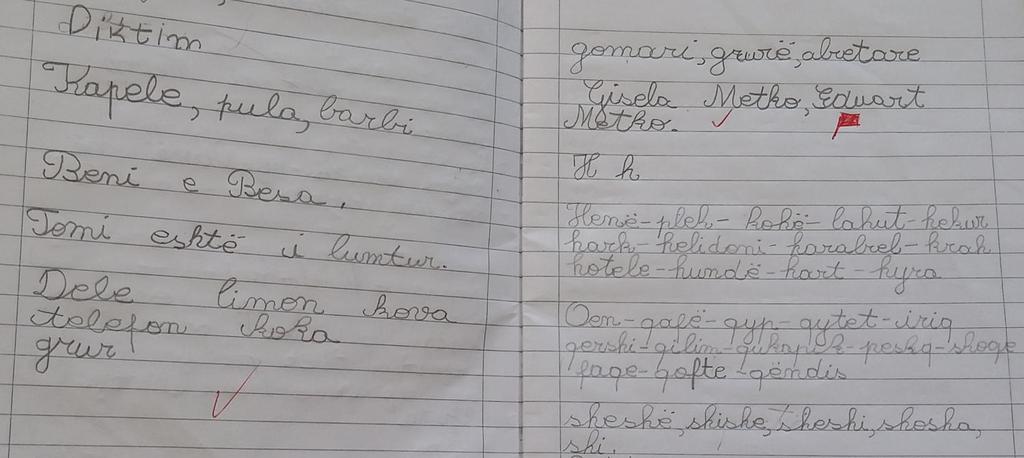 Diktim
Kapele, pula, barbi
Beni e Besa.
Tomi eshtë i lumtur.
Dele limon kova
telefon koka
grur
gomari, grurë, abretare
Gisela Metko, Eduart
Metko.
H h
Henë-pleh- kohë- lahut-hekur
hark-helidoni-harabel-krah
hotele-hundë-hart-hyra
Qen-qafë-qyp-qytet-iriq
qershi-qilim-peshq-shoqe
faqe-qofte-qëndis
sheshë, shishe, sheshi, shosha,
shi.